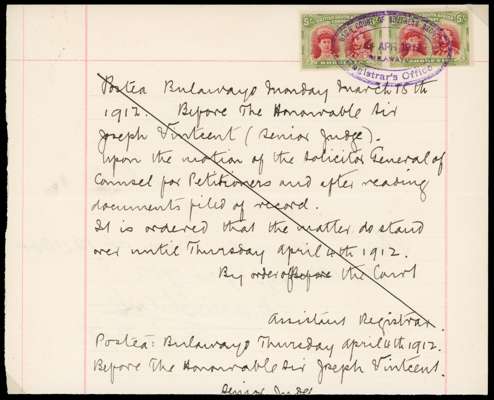 5/- 5/-
APR 1912
Registrar's Office
Postea Bulawayo Monday March 18th
1912. Before The Honourable Sir
Joseph Vintcent (Senior Judge).
Upon the motion of the Solicitor General of
Counsel for Petitioners and after reading
documents filed of record.
It is ordered that the matter do stand
over until Thursday April 4th 1912.
By order of Before the Court
Assistant Registrar.
Postea: Bulawayo Thursday April 4th 1912.
Before The Honourable Sir Joseph Vintcent.
Senior Judge